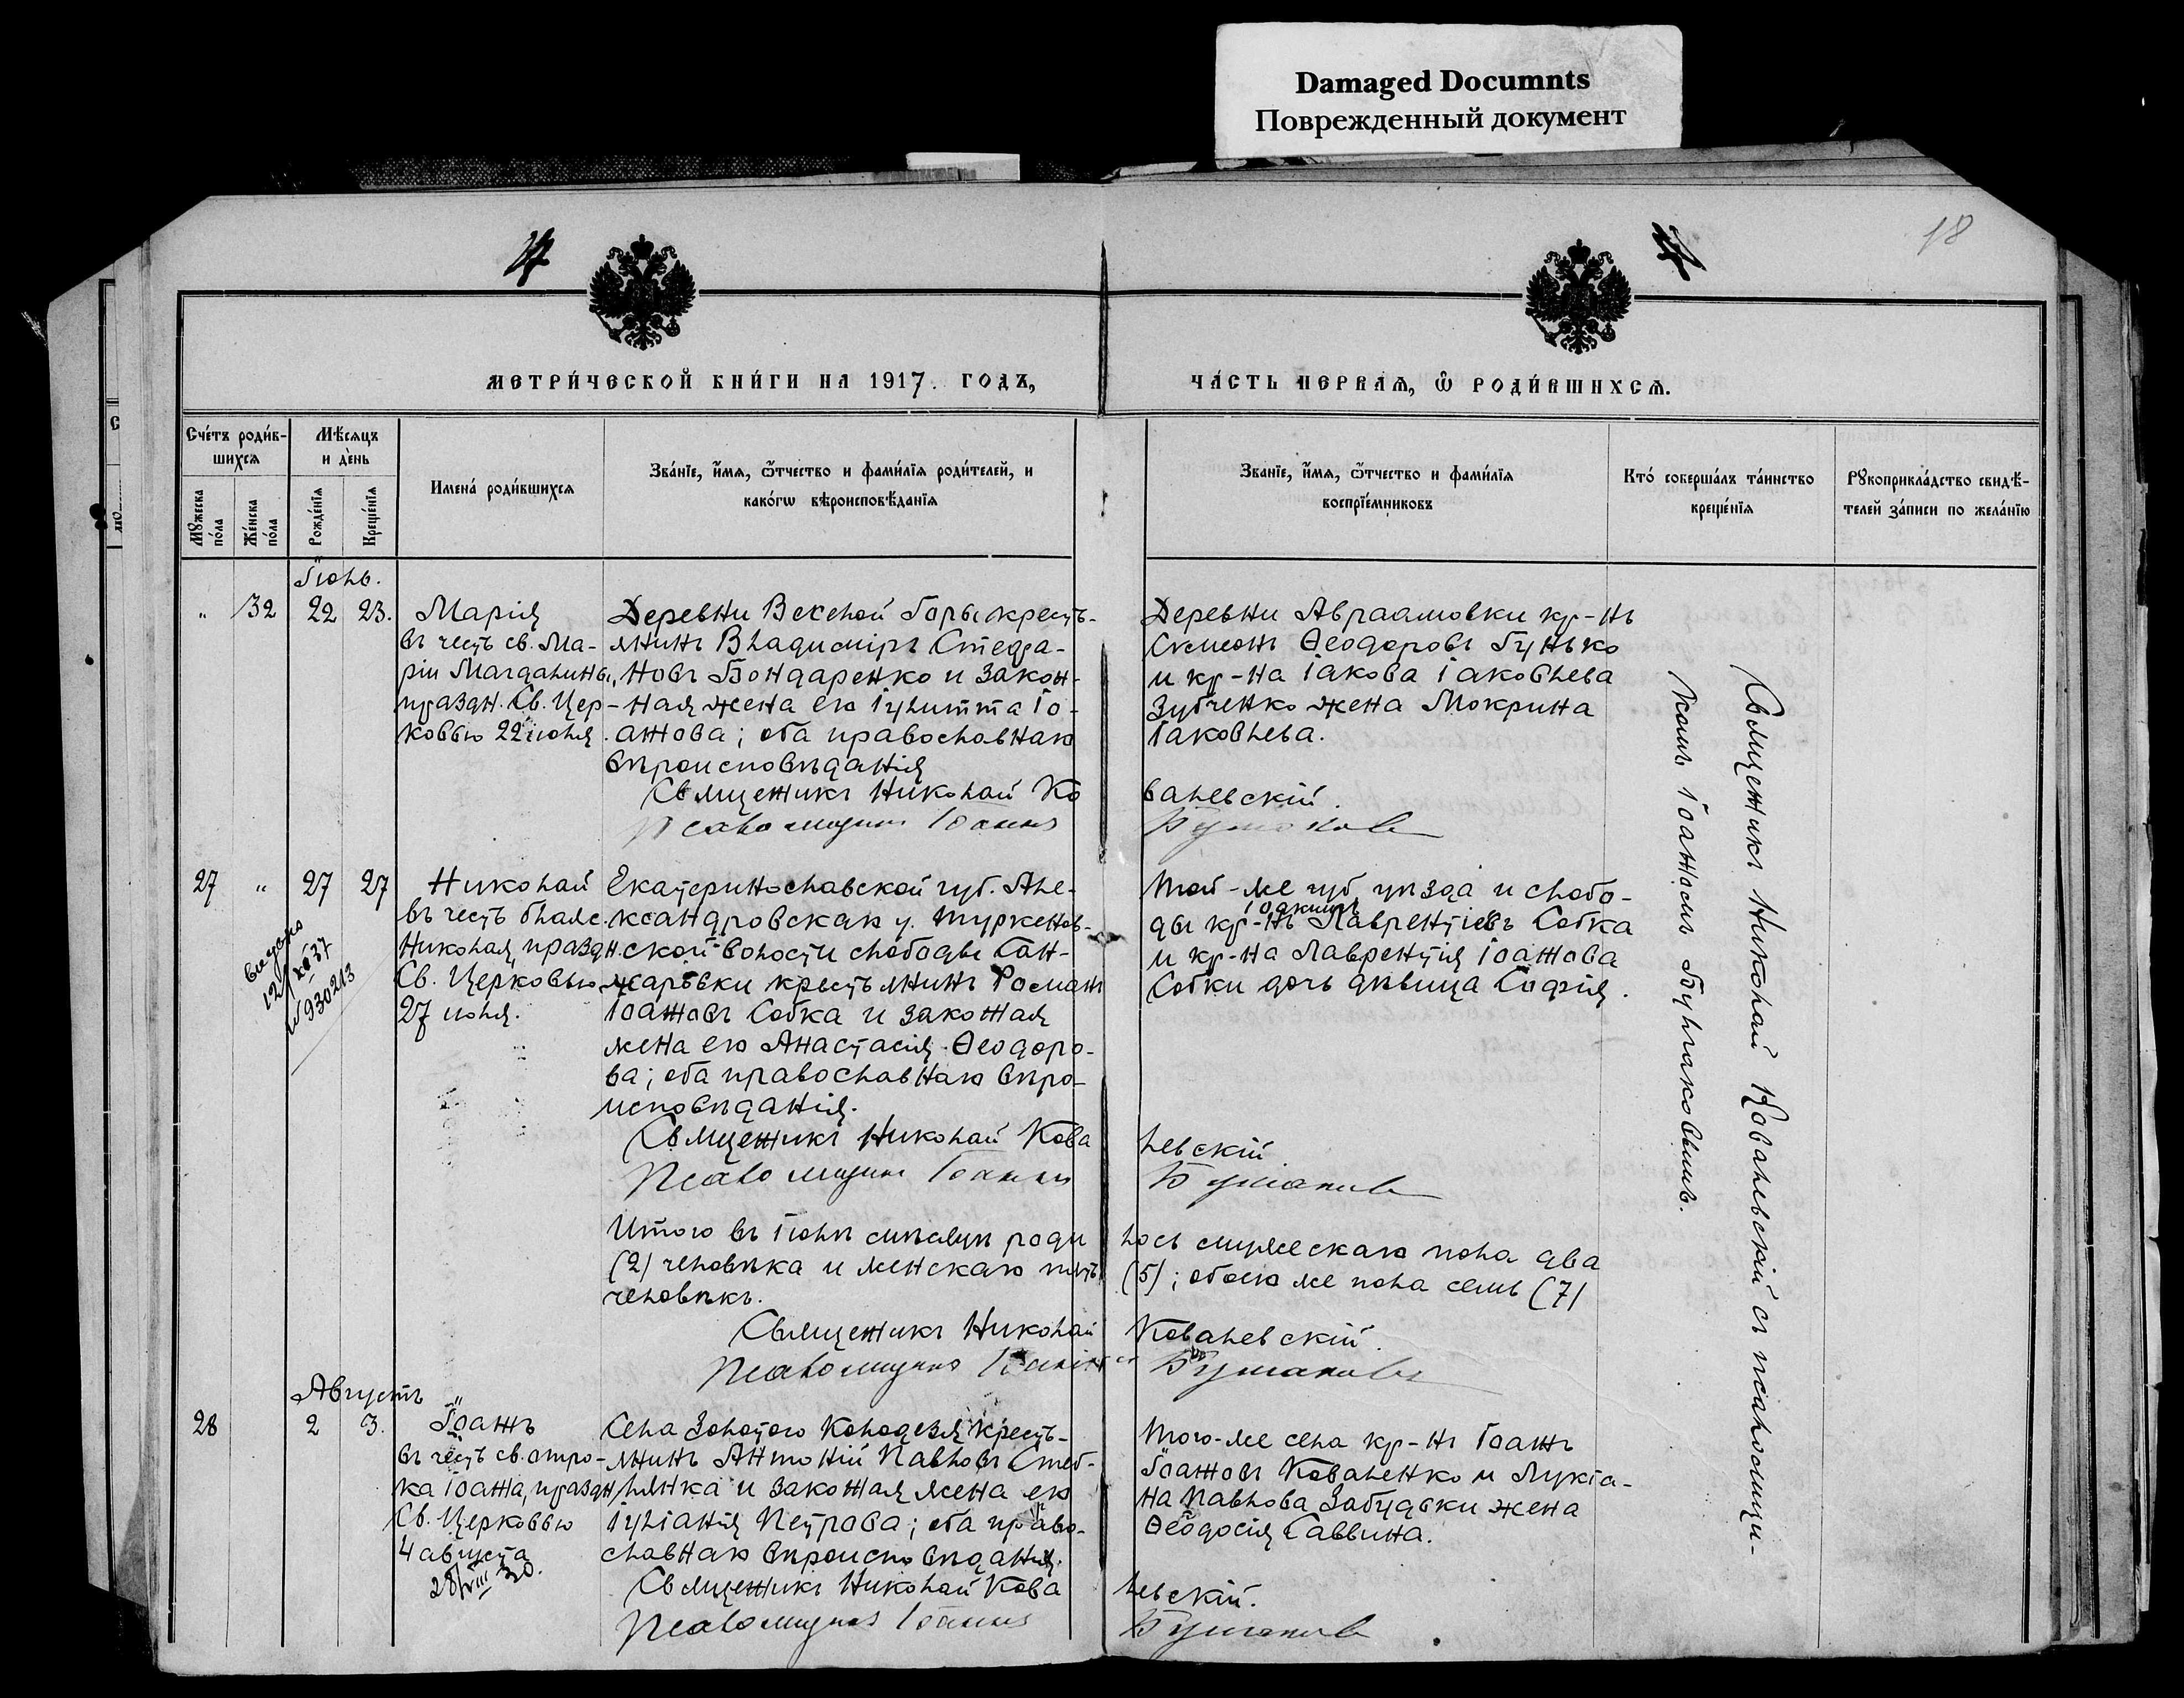 Damaged Documnts
Поврежденный документ
18
МЕТРИ́ЧЕСКОЙ КНИ́ГИ НА 1917. ГОДЪ,
ЧА́СТЬ ПЕРВАЯ, Ѡ РОДИ́ВШИХСЯ.
Сче́тъ роди́в-
шихся
Мѣ́сяцъ
и де́нь
Мꙋжеска по́ла
Же́нска по́ла
Рожде́нїя
Креще́нїя
Имена́ роди́вшихся
Зва́нїе, и҆́мя, ѻ҆́тчество и фами́лїя роди́телей, и
како́гѡ вѣроисповѣ́данїя
Зва́нїе, и҆́мя, ѻ҆́тчество и фами́лїя
воспрїе́мниковъ
Кто́ соверша́лъ та́инство
креще́нїя
Рꙋкоприкла́дство свидѣ́-
телей за́писи по жела́нїю
Іюль.
„ 32 22 23.
Марія
въ честь св. Ма-
ріи Магдалины,
праздн. Св. Цер-
ковью 22 іюля.
Деревни Веселой Горы кресть-
янинъ Владиміръ Стефа-
новъ Бондаренко и закон-
ная жена его Іулитта Іо-
аннова; оба православнаго
вѣроисповѣданія
Священникъ Николай Ко
Псаломщикъ Іоаннъ
Деревни Авраамовки кр-нъ
Симеонъ Ѳеодоровъ Гунько
и кр-на Іакова Іаковлева
Зубченко жена Мокрина
Іаковлева.
валевскій.
Булгаковъ
27 „ 27 27
Николай
въ честь блаж.
Николая, праздн.
Св. Церковью
27 іюля.
выдано
12/XII 37
№ 930213
Екатеринославской губ. Але-
ксандровскаго у. Туркенов-
ской волости слободы Сан-
жаровки крестьянинъ Романъ
Іоанновъ Собка и законная
жена его Анастасія Ѳеодоро-
ва; оба православнаго вѣро-
исповѣданія.
Священникъ Николай Кова
Псаломщикъ Іоаннъ
Той-же губ. уѣзда и слобо-
Іоакимъ
ды кр-нъ Лаврентіевъ Собка
и кр-на Лаврентія Іоаннова
Собки дочь дѣвица Софія.
левскій
Булгаковъ
Итого въ Іюлѣ мѣсяцѣ роди
лось мужескаго пола два
(2) человѣка и женскаго пять
(5); обоего же пола семь (7)
человѣкъ.
Священникъ Николай
Ковалевскій.
Псаломщикъ Іоаннъ
Булгаковъ
Августъ
28 2 3.
Іоаннъ
въ честь св. отро-
ка Іоанна, праздн.
Св. Церковью
4 августа
28/VIII 30.
Села Золотого Колодезя кресть-
янинъ Антоній Павловъ Стеб-
лянка и законная жена его
Іуліанія Петрова; оба право-
славнаго вѣроисповѣданія.
Священникъ Николай Кова
Псаломщикъ Іоаннъ
Того-же села кр-нъ Іоаннъ
Іоанновъ Коваленко и Лукіа-
на Павлова Забудьки жена
Ѳеодосія Саввина.
левскій.
Булгаковъ
Священникъ Николай Ковалевскій съ псаломщи-
комъ Іоанномъ Булгаковымъ.